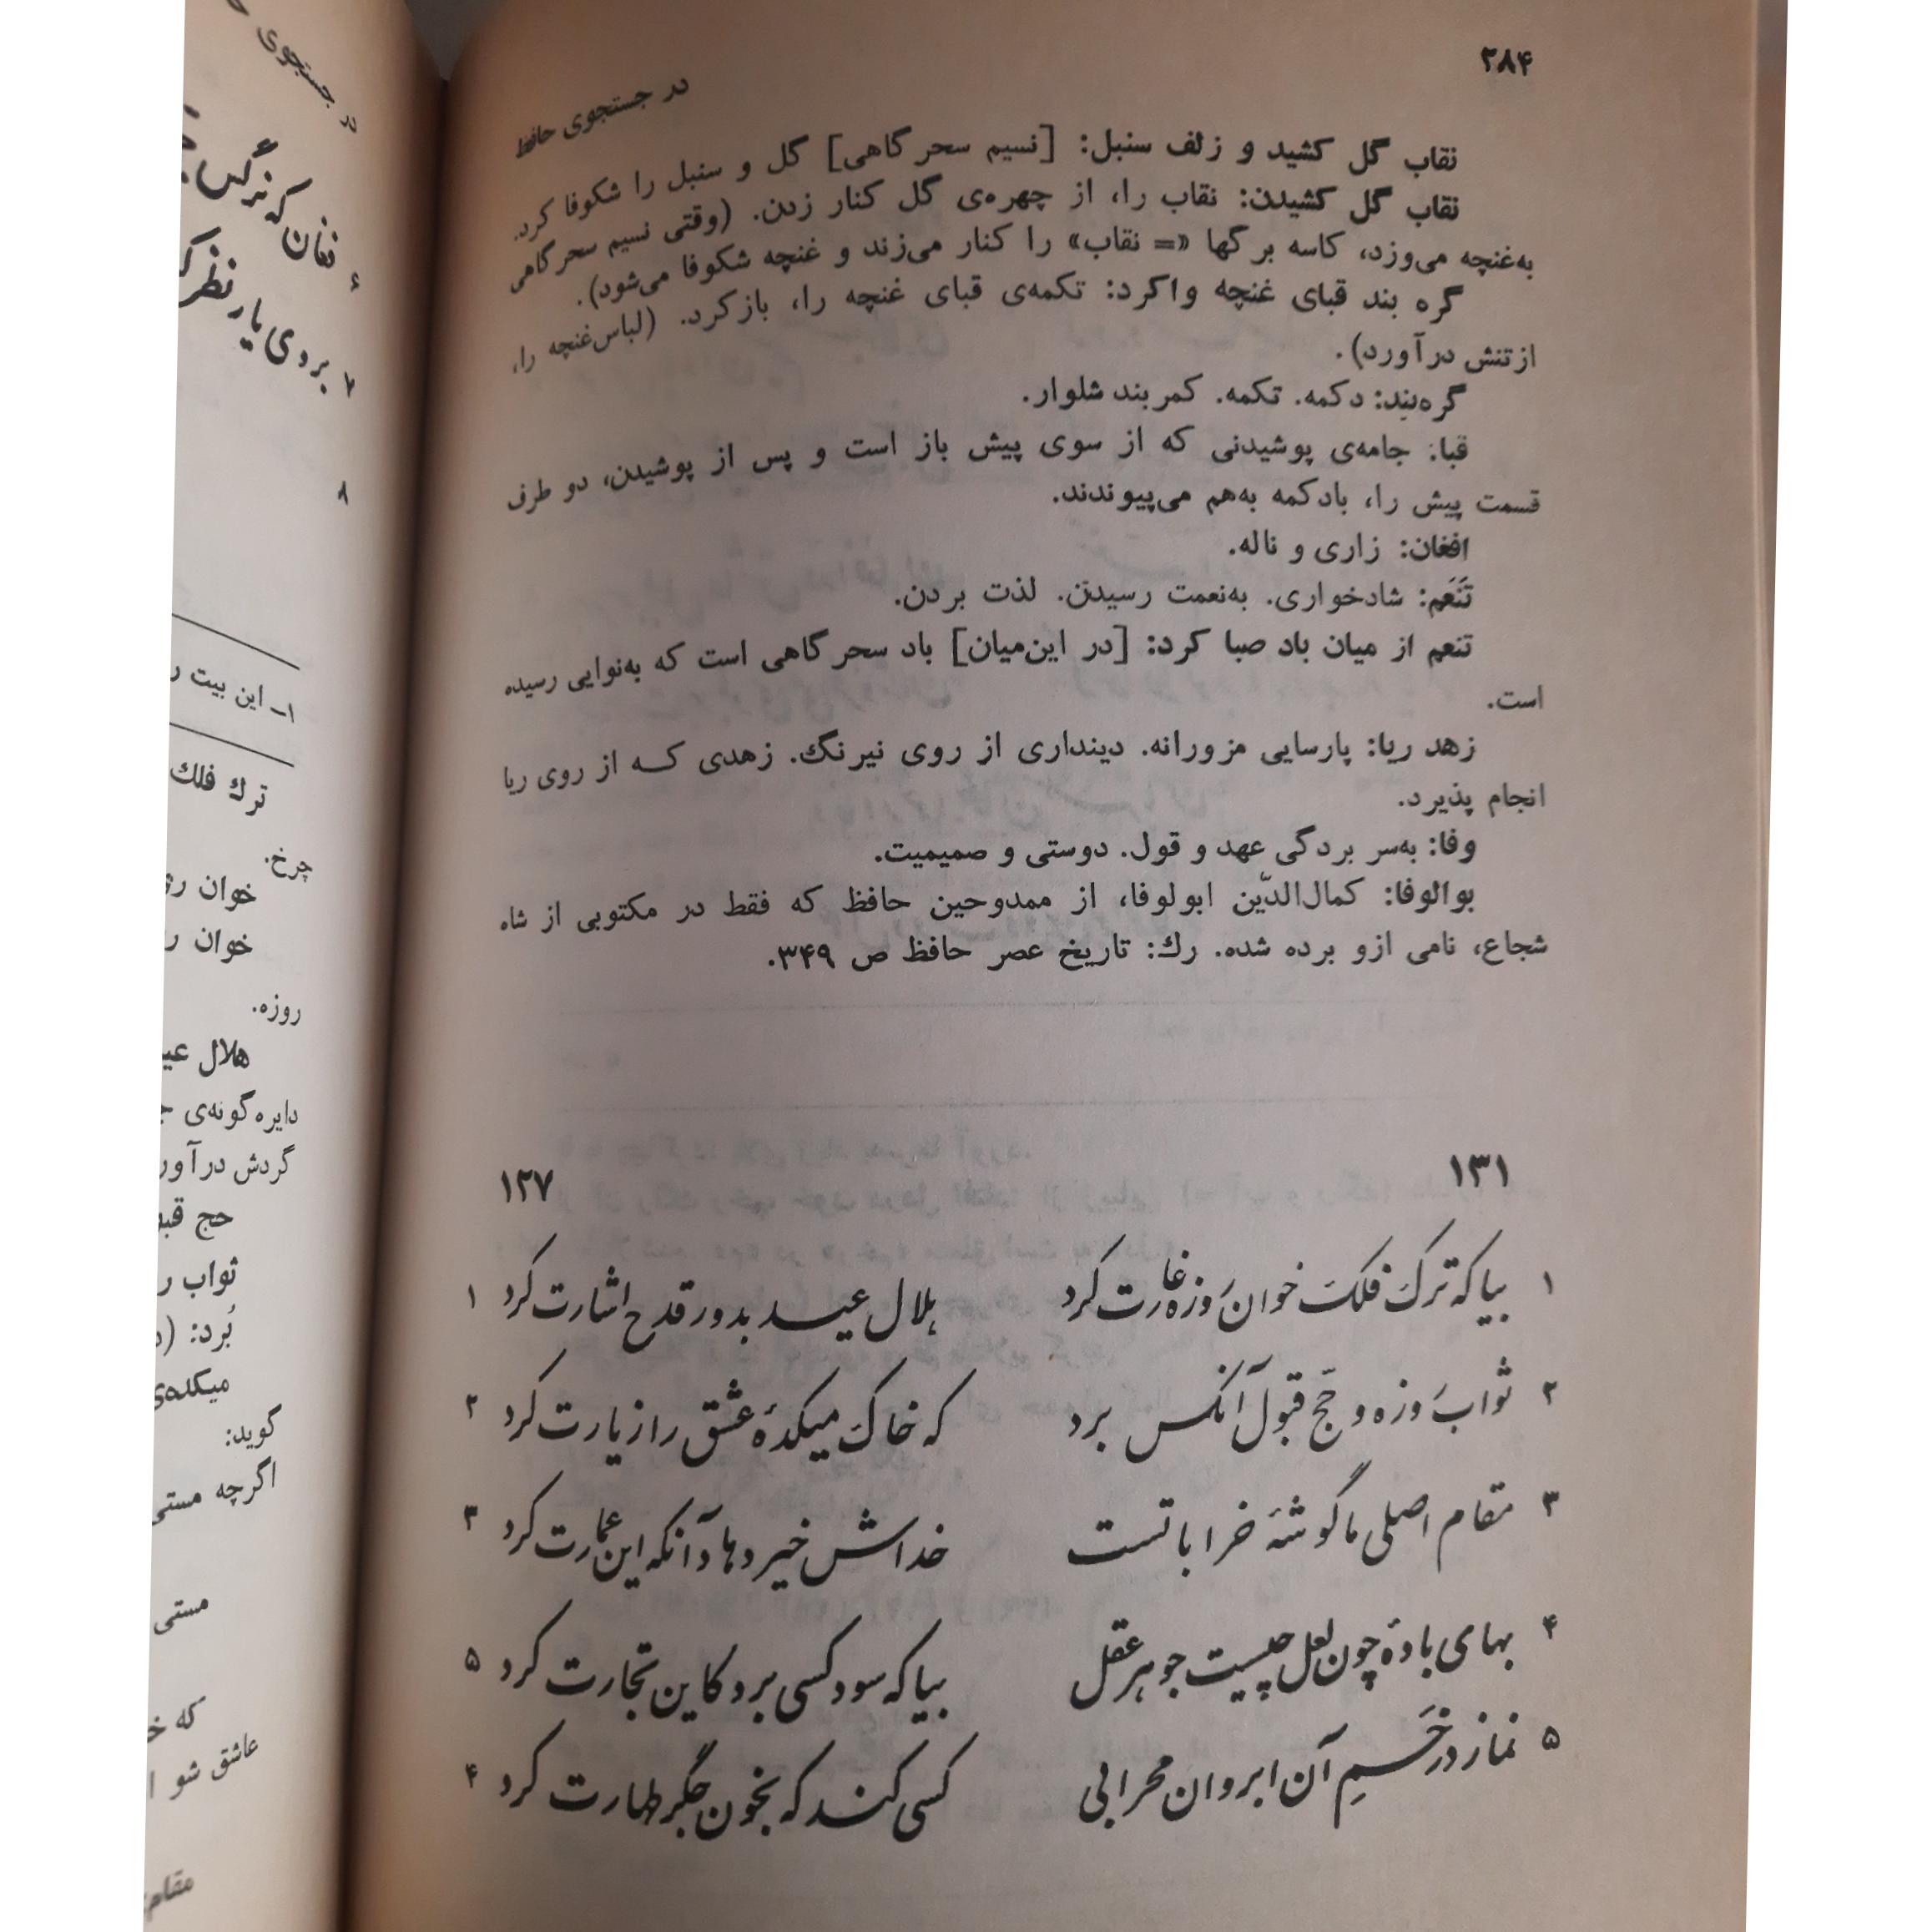 ۲۸۴
در جستجوی حافظ
نقاب گل کشید و زلف سنبل: [نسیم سحرگاهی] گل و سنبل را شکوفا کرد.
نقاب گل کشیدن: نقاب را، از چهره‌ی گل کنار زدن. (وقتی نسیم سحرگاهی
به‌غنچه می‌وزد، کاسه برگها «= نقاب» را کنار می‌زند و غنچه شکوفا می‌شود).
گره بند قبای غنچه واکرد: تکمه‌ی قبای غنچه را، بازکرد. (لباس‌غنچه را،
ازتنش درآورد).
گره‌بند: دکمه. تکمه. کمربند شلوار.
قبا: جامه‌ی پوشیدنی که از سوی پیش باز است و پس از پوشیدن، دو طرف
قسمت پیش را، بادکمه به‌هم می‌پیوندند.
افغان: زاری و ناله.
تَنَعَم: شادخواری. به‌نعمت رسیدن. لذت بردن.
تنعم از میان باد صبا کرد: [در این‌میان] باد سحرگاهی است که به‌نوایی رسیده
است.
زهد ریا: پارسایی مزورانه. دینداری از روی نیرنگ. زهدی که از روی ریا
انجام پذیرد.
وفا: به‌سر بردگی عهد و قول. دوستی و صمیمیت.
بوالوفا: کمال‌الدّین ابولوفا، از ممدوحین حافظ که فقط در مکتوبی از شاه
شجاع، نامی ازو برده شده. رك: تاریخ عصر حافظ ص ۳۴۹.
۱۳۱ ۱۲۷
۱ بیا که ترک فلک خوان روزه غارت کرد هلال عید بدور قدح اشارت کرد ۱
۲ ثواب روزه و حجّ قبول آنکس برد که خاک میکدهٔ عشق را زیارت کرد ۲
۳ مقام اصلی ما گوشهٔ خراباتست خداش خیر دهاد آنکه این عمارت کرد ۳
۴ بهای بادهٔ چون لعل چیست جوهر عقل بیا که سود کسی برد کاین تجارت کرد ۵
۵ نماز در خَمِ آن ابروان محرابی کسی کند که بخون جگر طهارت کرد ۴
در جستجوی
۶ فغان که نرگس
۷ بروی یار نظر
۸
۱- این بیت
ترك فلك
چرخ.
خوان
خوان
روزه.
هلال
دایره‌گونه‌ی
گردش درآور
حج
ثواب
بُرد:
میکده‌ی
گوید:
اگرچه مستی
مستی
که
عاشق شو
مقام